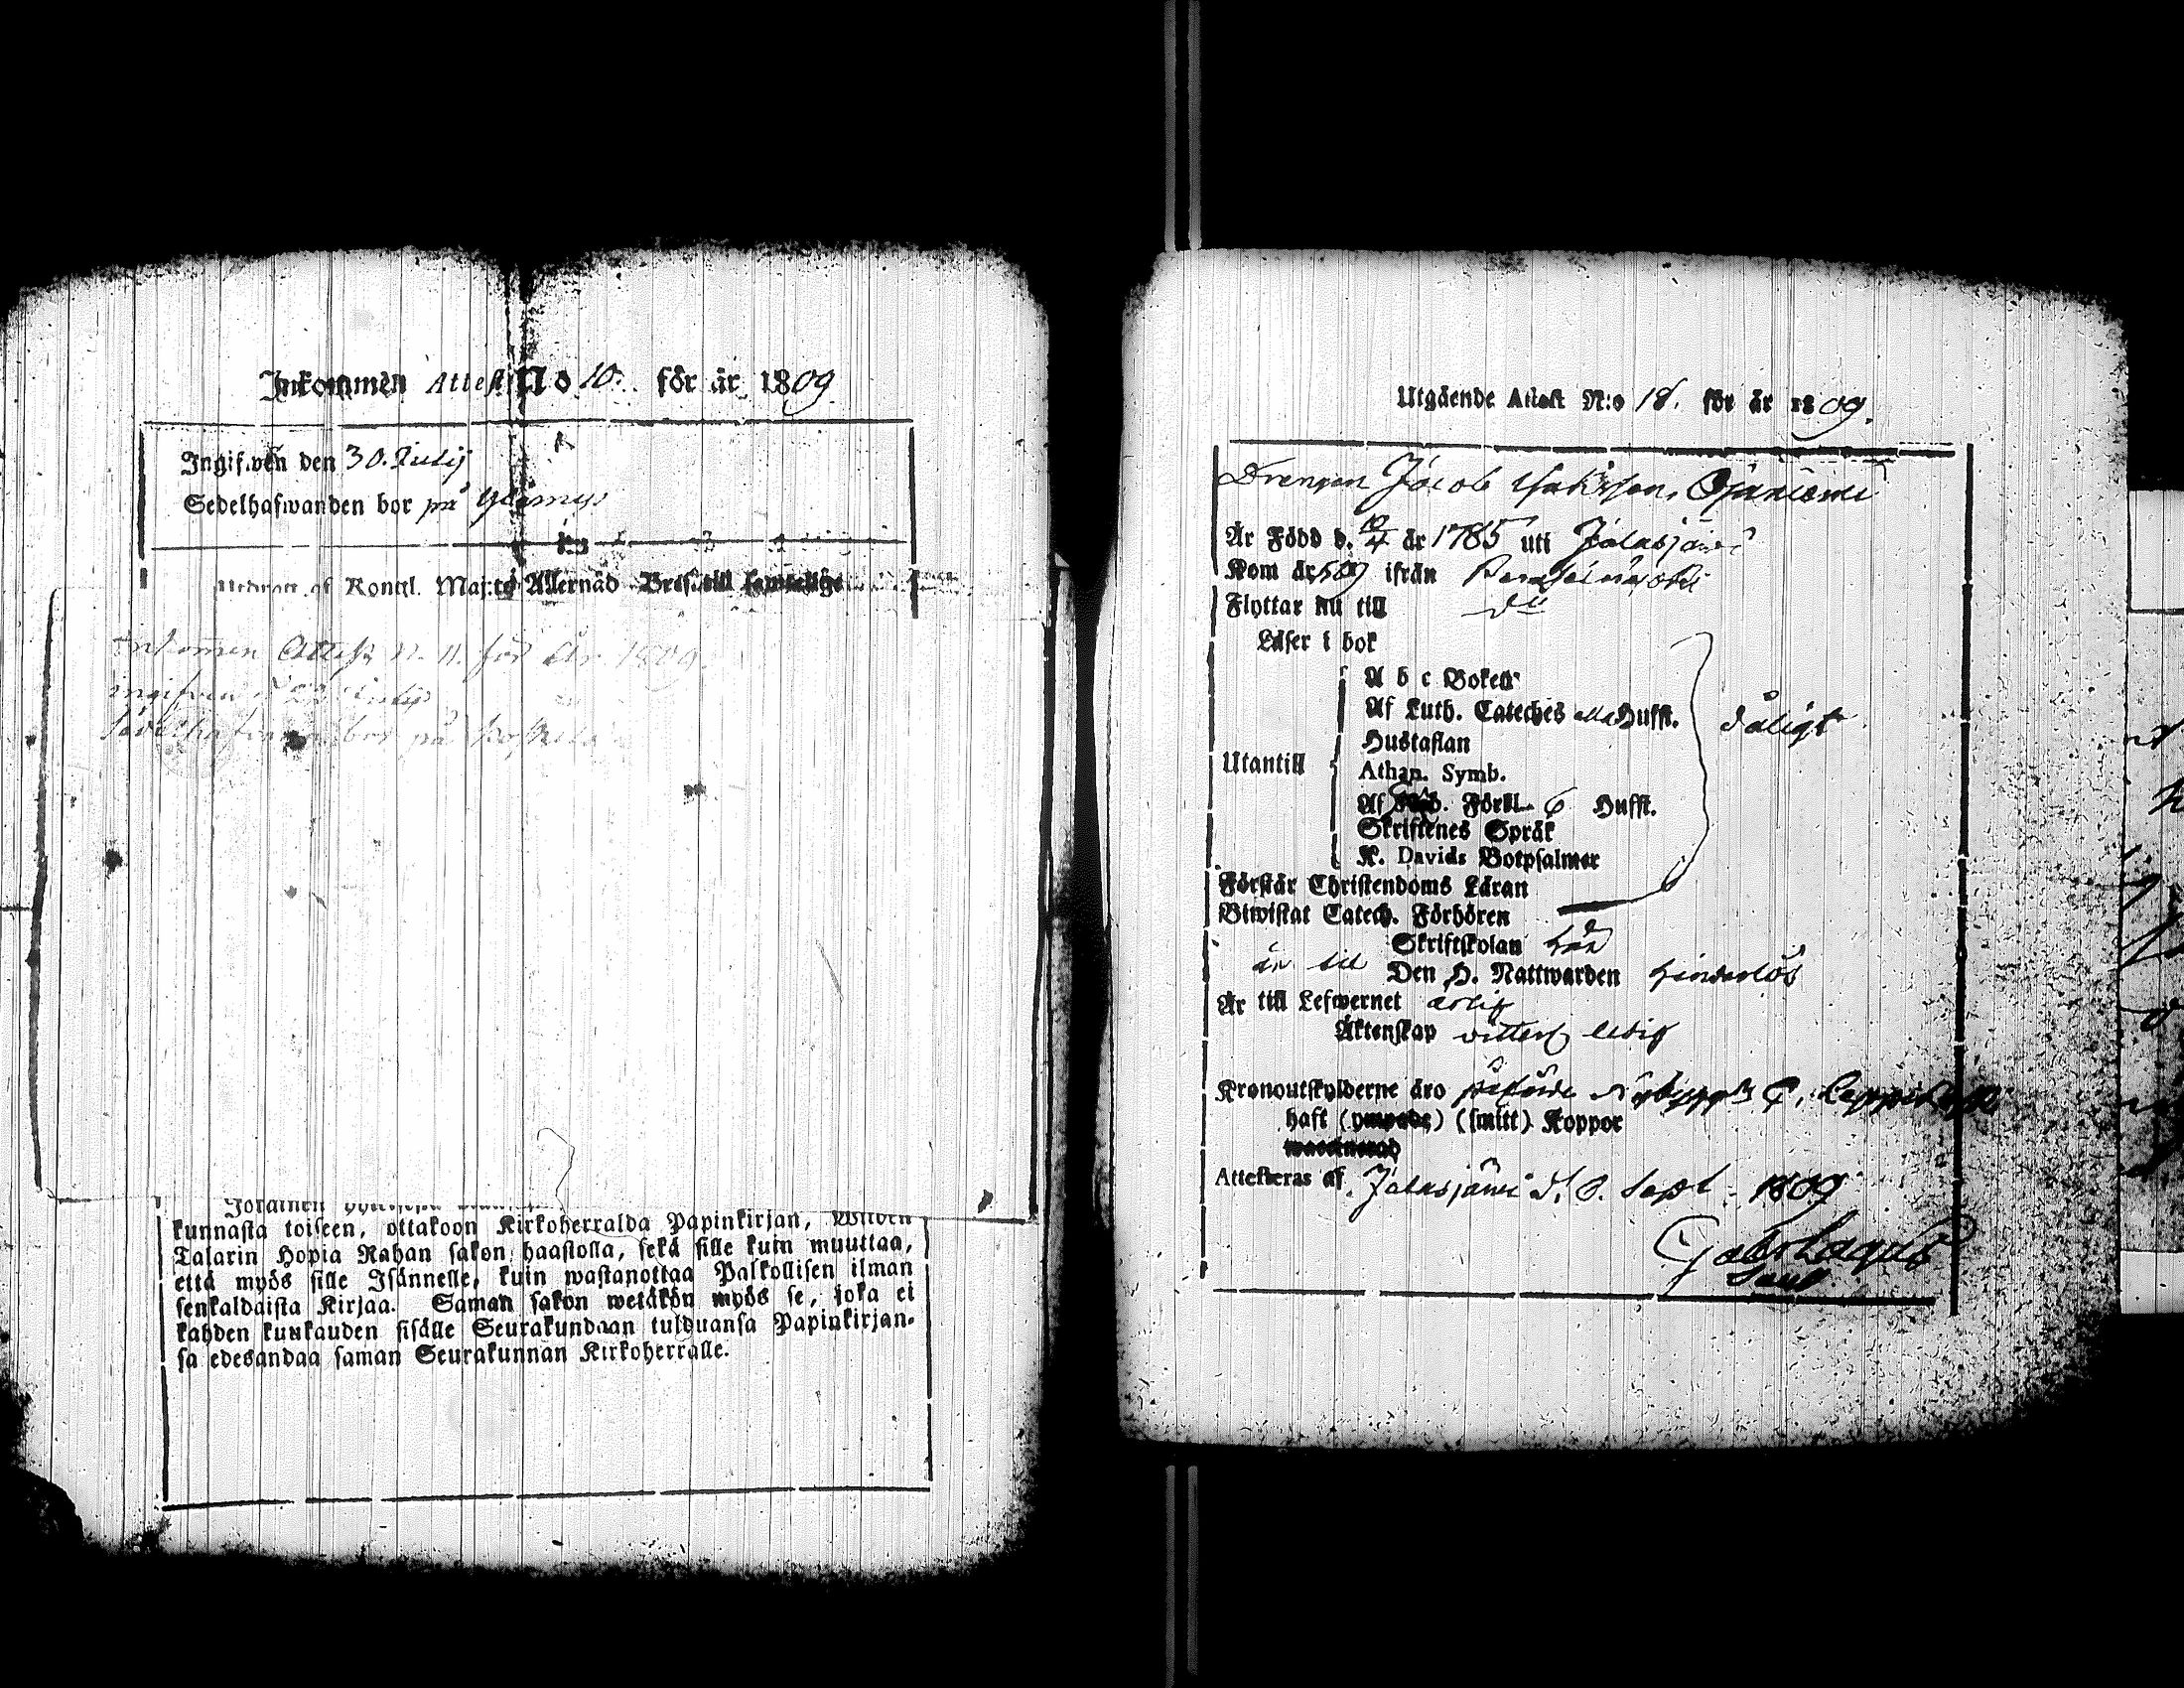 Inkommen Attest No 10. för år 1809.
Ingifwen den 30. Julij
Sedelhafwanden bor på
Utdrag af Kongl. Maj:ts Allernåd Bref till samtelige
Inkommen Attest N. 11. för år 1809.
ingifven d Julij
Sedelhafvanden bor på Koskela
Jokainen
kunnasta toiseen, ottakoon Kirkoherralda Papinkirjan, Wiiden
Talarin Hopia Rahan sakon haastolla, sekä sille kuin muuttaa,
että myös sille Isännelle, kuin wastanottaa Palkollisen ilman
senkaldaista Kirjaa. Saman sakon wetäkön myös se, joka ei
kahden kuukauden sisälle Seurakundaan tulduansa Papinkirjan-
sa edesandaa saman Seurakunnan Kirkoherralle.
Utgående Attest N:o 18. för år 1809.
Drengen Jacob
Är Född d. år 1785 uti Jalasjärvi
Kom år 1809 ifrån
Flyttar nu till do
Läser i bok
A b c Boken
Af Luth. Cateches alla Hufst. dåligt
Hustaflan
Utantill
Athan. Symb.
Af Förkl. 6 Hufst.
Skriftenes Språk
K. Davids Botpsalmer
Förstår Christendoms Läran
Biwistat Catech. Förhören
Skriftskolan
är til Den H. Nattwarden hinderlös
Är till Lefwernet ärlig
Äktenskap ledig
Kronoutskylderne äro
haft (ympade) (smitt) Koppor
Attesteras af Jalasjärvi d. 3. Sept. 1809